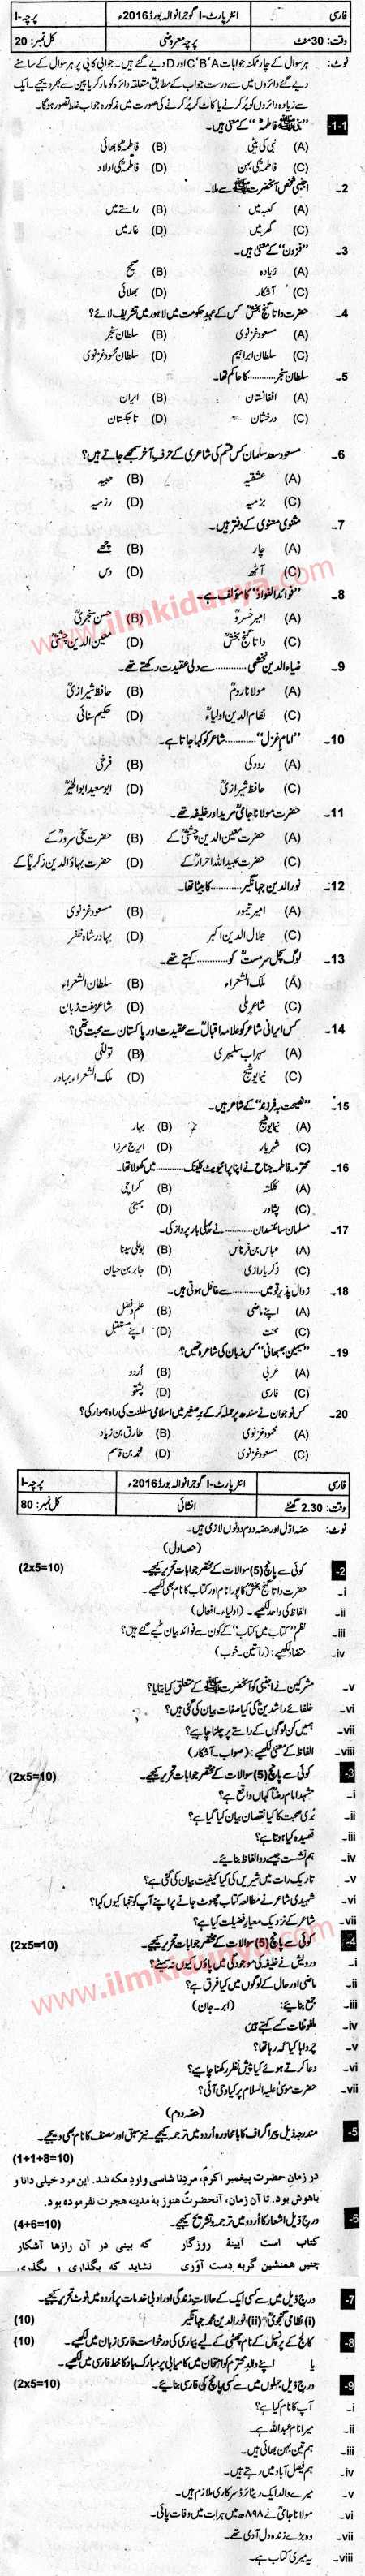 فارسی انٹرپارٹ-I گوجرانوالہ بورڈ 2016ء پرچہ-I
وقت: 30منٹ پرچہ معروضی کل نمبر: 20
نوٹ: ہر سوال کے چار ممکنہ جوابات C'B'A اور D دیے گئے ہیں۔ جوابی کاپی پر ہر سوال کے سامنے
دیے گئے دائروں میں سے درست جواب کے مطابق متعلقہ دائرہ کو مارکر یا پین سے بھر دیجیے۔ ایک
سے زیادہ دائروں کو پُر کرنے یا کاٹ کر پُر کرنے کی صورت میں مذکورہ جواب غلط تصور ہوگا۔
1-1- فاطمہؓ" کے معنی ہیں۔
(A) نبی کی بیٹی (B) فاطمہؓ کا بھائی
(C) فاطمہؓ کی بہن (D) فاطمہؓ کی اولاد
2- اجنبی شخص آنحضرت ﷺ سے ملا۔
(A) کعبہ میں (B) راستے میں
(C) گھر میں (D) غار میں
3- "فزون" کے معنی ہیں۔
(A) زیادہ (B) صحیح
(C) آشکار (D) بھلائی
4- حضرت داتا گنج بخشؒ کس کے عہدِ حکومت میں لاہور میں تشریف لائے؟
(A) مسعود غزنوی (B) سلطان سنجر
(C) سلطان ابراہیم (D) سلطان محمود غزنوی
5- سلطان سنجر .......... کا حاکم تھا۔
(A) افغانستان (B) ایران
(C) درخشان (D) تاجکستان
6- مسعود سعد سلمان کس قسم کی شاعری کے حرفِ آخر سمجھے جاتے ہیں؟
(A) عشقیہ (B) حبسیہ
(C) بزمیہ (D) رزمیہ
7- مثنوی معنوی کے دفتر ہیں۔
(A) چار (B) چھے
(C) آٹھ (D) دس
8- "فوائد الفواد" کا مؤلف ہے۔
(A) امیر خسروؒ (B) حسن سنجریؒ
(C) داتا گنج بخشؒ (D) معین الدین چشتیؒ
9- ضیاء الدین نخشبی .......... سے دلی عقیدت رکھتے تھے۔
(A) مولانا رومؒ (B) حافظ شیرازیؒ
(C) نظام الدین اولیاءؒ (D) حکیم سنائی
10- "امام غزل" .......... شاعر کو کہا جاتا ہے۔
(A) رودکی (B) فرخی
(C) حافظ شیرازیؒ (D) ابو سعید ابوالخیرؒ
11- حضرت مولانا جامیؒ مرید اور خلیفہ تھے۔
(A) حضرت معین الدین چشتیؒ کے (B) حضرت سخی سرورؒ کے
(C) حضرت عبید اللہ احرارؒ کے (D) حضرت بہاؤ الدین زکریاؒ کے
12- نور الدین جہانگیر .......... کا بیٹا تھا۔
(A) امیر تیمور (B) مسعود غزنوی
(C) جلال الدین اکبر (D) بہادر شاہ ظفر
13- لوگ سچل سرمستؒ کو .......... کہتے تھے۔
(A) ملک الشعراء (B) سلطان الشعراء
(C) شاعرِ ملی (D) شاعر ہفت زبان
14- کس ایرانی شاعر کو علامہ اقبالؒ سے عقیدت اور پاکستان سے محبت تھی؟
(A) سہراب سپہری (B) تولّلی
(C) نیما یوشیج (D) ملک الشعراء بہار
15- "نصیحت بہ فرزند" کے شاعر ہیں۔
(A) نیما یوشیج (B) بہار
(C) شہریار (D) ایرج مرزا
16- محترمہ فاطمہ جناح نے اپنا پرائیویٹ کلینک .......... میں کھولا تھا۔
(A) کلکتہ (B) کراچی
(C) پشاور (D) بمبئی
17- مسلمان سائنسدان .......... نے پہلی بار پرواز کی۔
(A) عباس بن فرناس (B) بوعلی سینا
(C) زکریا رازی (D) جابر بن حیان
18- زوال پذیر قومیں .......... سے غافل ہوتی ہیں۔
(A) اپنے ماضی (B) علم و فضل
(C) محنت (D) اپنے مستقبل
19- "سیمین بہبہانی" کس زبان کی شاعرہ تھیں؟
(A) عربی (B) اُردو
(C) فارسی (D) پشتو
20- کس نوجوان نے سندھ پر حملہ کر کے برصغیر میں اسلامی سلطنت کی راہ ہموار کی؟
(A) محمود غزنوی (B) طارق بن زیاد
(C) مسعود غزنوی (D) محمد بن قاسم
فارسی انٹرپارٹ-I گوجرانوالہ بورڈ 2016ء پرچہ-I
وقت: 2.30 گھنٹے انشائی کل نمبر: 80
نوٹ: حصہ اوّل اور حصہ دوم دونوں لازمی ہیں۔
(حصہ اول)
2- کوئی سے پانچ (5) سوالات کے مختصر جوابات تحریر کیجیے۔ (2x5=10)
i- حضرت داتا گنج بخشؒ کا پورا نام اور کتاب کا نام بھی لکھیے۔
ii- الفاظ کی واحد لکھیے۔ (اولیاء۔ افعال)
iii- نظم "کتاب میں کتاب" کے کون سے فوائد بیان کیے گئے ہیں؟
iv- متضاد لکھیے: (راستین۔ خوب)
v- مشرکین نے اجنبی کو آنحضرت ﷺ کے متعلق کیا بتایا؟
vi- خلفائے راشدینؓ کی کیا صفات بیان کی گئی ہیں؟
vii- ہمیں کن لوگوں کے راستے پر چلنا چاہیے؟
viii- الفاظ کے معنی لکھیے: (صواب۔ آشکار)
3- کوئی سے پانچ (5) سوالات کے مختصر جوابات تحریر کیجیے۔ (2x5=10)
i- مشہد امام رضاؑ کہاں واقع ہے؟
ii- بُری صحبت کا کیا نقصان بیان کیا گیا ہے؟
iii- قصیدہ کیا ہوتا ہے؟
iv- ہم نشست جیسے دو الفاظ بنائیے۔
v- تاریک رات میں شیریں کی کیا کیفیت بیان کی گئی ہے؟
vi- شہیدی شاعر نے مطالعہ کتاب چھوٹ جانے پر اپنے آپ کو تنہا کیوں کہا؟
vii- شاعر کے نزدیک معیارِ فضیلت کیا ہے؟
4- کوئی سے پانچ (5) سوالات کے مختصر جوابات تحریر کیجیے۔ (2x5=10)
i- درویش نے خلیفہ کی موجودگی میں پاؤں کیوں نہ سمیٹے؟
ii- ماضی اور حال کے لوگوں میں کیا فرق ہے؟
iii- جمع بنائیے: (ابر۔ جان)
iv- ملفوظات کسے کہتے ہیں
v- چرواہا کیا کہہ رہا تھا؟
vi- دعا کرتے ہوئے کیا پیش نظر رکھنا چاہیے؟
vii- حضرت موسیٰ علیہ السلام پر کیا وحی آئی؟
(حصہ دوم)
5- مندرجہ ذیل پیراگراف کا بامحاورہ اُردو میں ترجمہ کیجیے۔ نیز سبق اور مصنف کا نام بھی دیجیے۔
(1+1+8=10)
در زمان حضرت پیغمبر اکرمؐ، مردِنا شناسی واردِ مکہ شد. این مرد خیلی دانا و
باهوش بود. تا آن زمان، آنحضرتؐ هنوز به مدینه هجرت نفرموده بود.
6- درج ذیل اشعار کا اُردو میں ترجمہ و تشریح کیجیے۔ (4+6=10)
کتاب است آیینهٔ روزگار که بینی در آن رازها آشکار
چنین همنشین گربه دست آوری نشاید که بگذاری و بگذری
7- درج ذیل میں سے کسی ایک کے حالاتِ زندگی اور ادبی خدمات پر اُردو میں نوٹ تحریر کیجیے۔
(i) نظامی گنجویؒ (ii) نور الدین محمد جہانگیر (10)
8- کالج کے پرنسپل کے نام چھٹی کے لیے بیماری کی درخواست فارسی زبان میں لکھیے۔ (10)
یا اپنے والدِ محترم کو امتحان میں کامیابی پر مبارک باد کا خط فارسی میں لکھیے۔
9- درج ذیل جملوں میں سے کسی پانچ کی فارسی بنائیے۔ (2x5=10)
i- آپ کا نام کیا ہے؟
ii- میرا نام عبداللہ ہے۔
iii- ہم تین بہن بھائی ہیں۔
iv- ہم فیصل آباد میں رہتے ہیں۔
v- میرے والد ایک ریٹائرڈ سرکاری ملازم ہیں۔
vi- مولانا جامیؒ نے ۸۹۸ھ میں ہرات میں وفات پائی۔
vii- وہ بڑے زندہ دل آدمی تھے۔
viii- یہ میری کتاب ہے۔
www.ilmkidunya.com
www.ilmkidunya.com